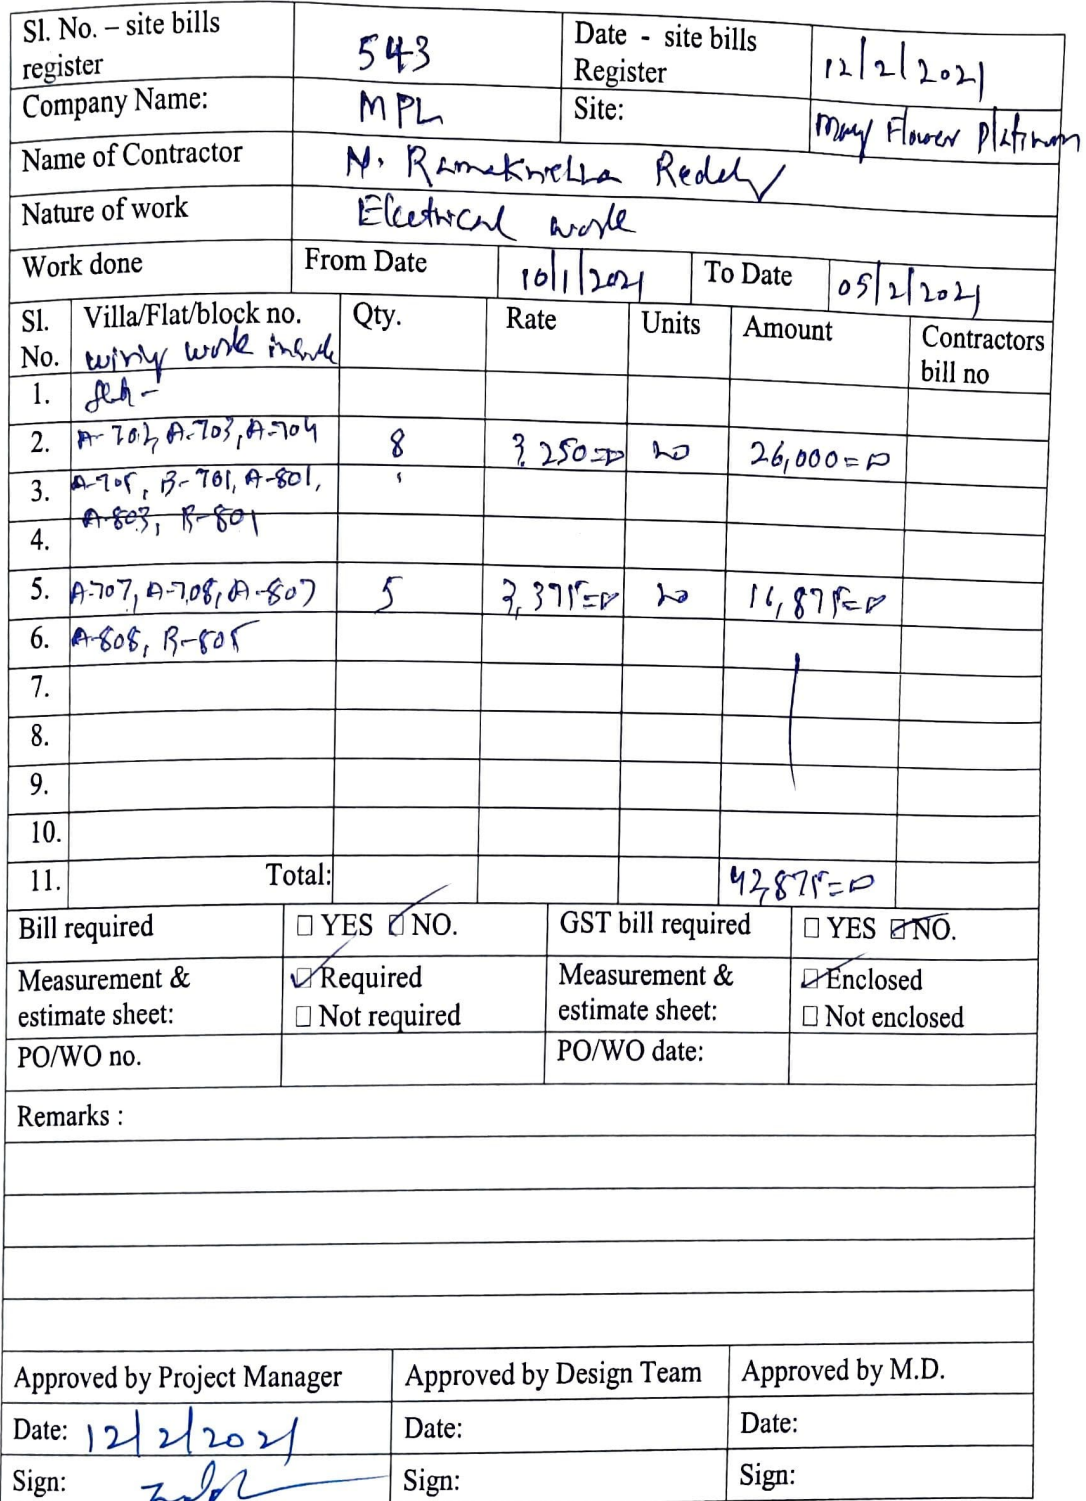 Sl. No. – site bills register 543 Date - site bills Register 12/2/2021
Company Name: MPL Site: May Flower Platinum
Name of Contractor N. Reddy
Nature of work Electrical work
Work done From Date 10/1/2021 To Date 05/2/2021
Sl. No. Villa/Flat/block no. Qty. Rate Units Amount Contractors bill no
work inside
1.
2. A-702, A-703, A-704 8 3,250=00 no 26,000=00
3. A-705, B-701, A-801,
A-803, B-801
4.
5. A-707, A-708, A-807 5 3,375=00 no 16,875=00
6. A-808, B-805
7.
8.
9.
10.
11. Total: 42,875=00
Bill required □ YES ☑ NO. GST bill required □ YES ☑ NO.
Measurement & estimate sheet: ☑ Required Measurement & estimate sheet: ☑ Enclosed
□ Not required □ Not enclosed
PO/WO no. PO/WO date:
Remarks :
Approved by Project Manager Approved by Design Team Approved by M.D.
Date: 12/2/2021 Date: Date:
Sign: Sign: Sign: